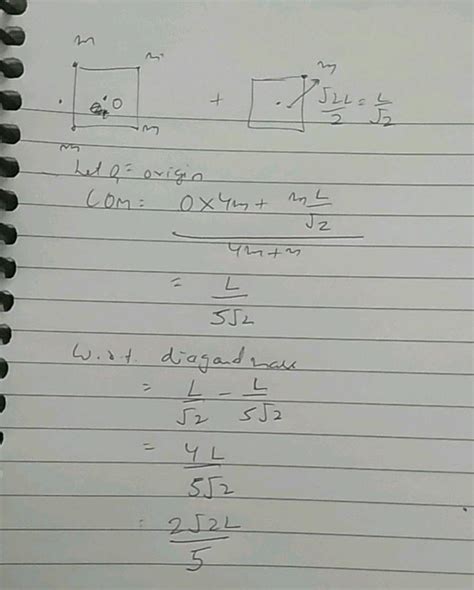 m m
m
O + √2L/2 = L/√2
m m
Let O = origin
COM = (0×4m + m L/√2) / (4m+m)
= L/5√2
W.r.t. diagonal mass
= L/√2 - L/5√2
= 4L/5√2
= 2√2L/5